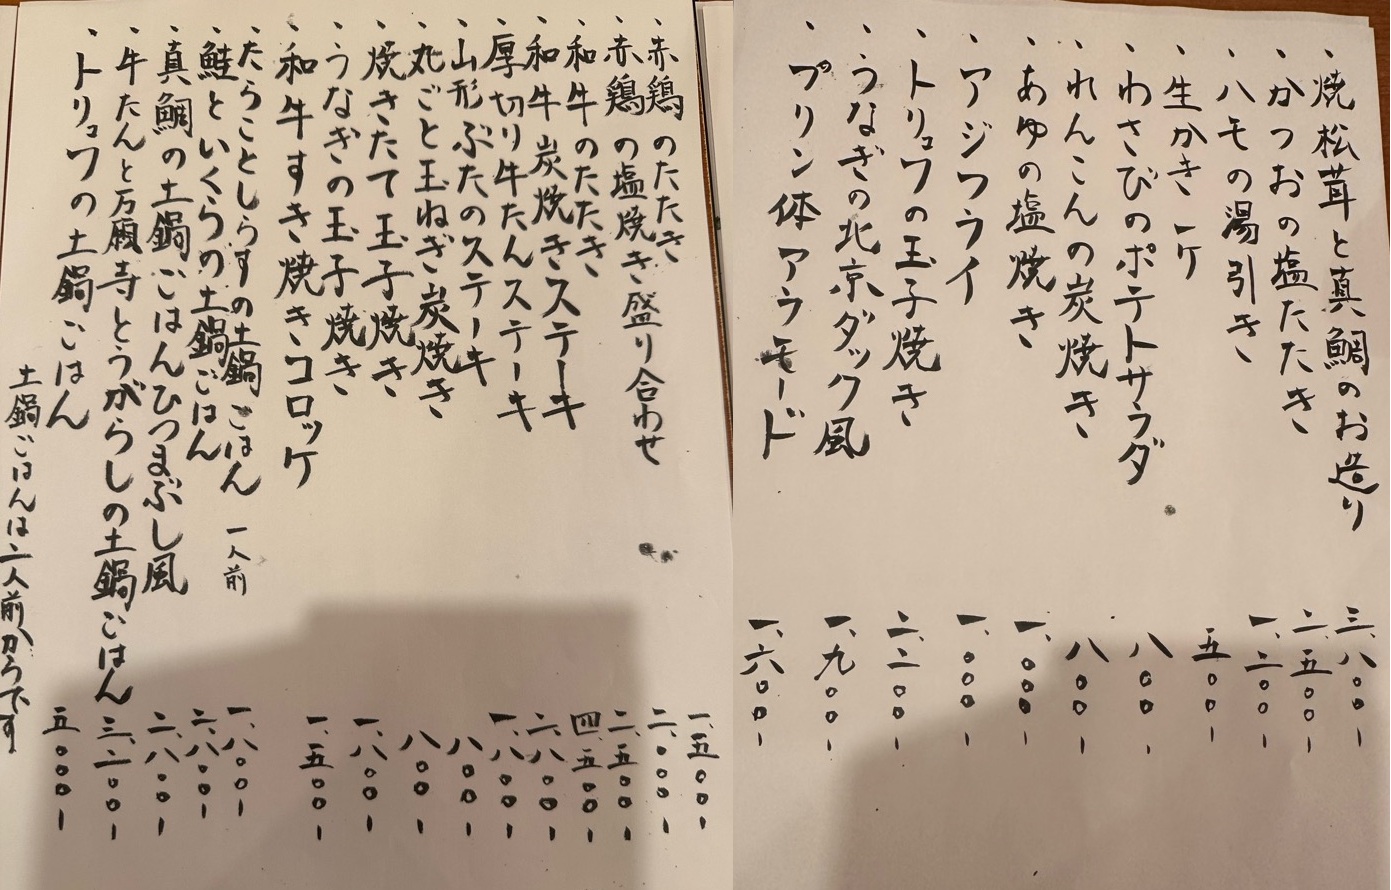 ・焼松茸と真鯛のお造り 三、八〇〇ー
・かつおの塩たたき 二、五〇〇ー
・ハモの湯引き 一、二〇〇ー
・生かき一ケ 五〇〇ー
・わさびのポテトサラダ 八〇〇ー
・れんこんの炭焼き 八〇〇ー
・あゆの塩焼き 一、〇〇〇ー
・アジフライ 一、〇〇〇ー
・トリュフの玉子焼き 二、二〇〇ー
・うなぎの北京ダック風 一、九〇〇ー
・プリン体アラモード 一、六〇〇ー
・赤鶏のたたき 一、五〇〇ー
・赤鶏の塩焼き盛り合わせ 二、〇〇〇ー
・和牛のたたき 二、五〇〇ー
・和牛炭焼きステーキ 四、五〇〇ー
・厚切り牛たんステーキ 二、八〇〇ー
・山形ぶたのステーキ 一、八〇〇ー
・丸ごと玉ねぎ炭焼き 八〇〇ー
・焼きたて玉子焼き 八〇〇ー
・うなぎの玉子焼き 一、八〇〇ー
・和牛すき焼きコロッケ 一、五〇〇ー
・たらことしらすの土鍋ごはん 一人前 一、八〇〇ー
・鮭といくらの土鍋ごはん 二、八〇〇ー
・真鯛の土鍋ごはんひつまぶし風 二、八〇〇ー
・牛たんと万願寺とうがらしの土鍋ごはん 三、二〇〇ー
・トリュフの土鍋ごはん 五、〇〇〇ー
土鍋ごはんは二人前からです